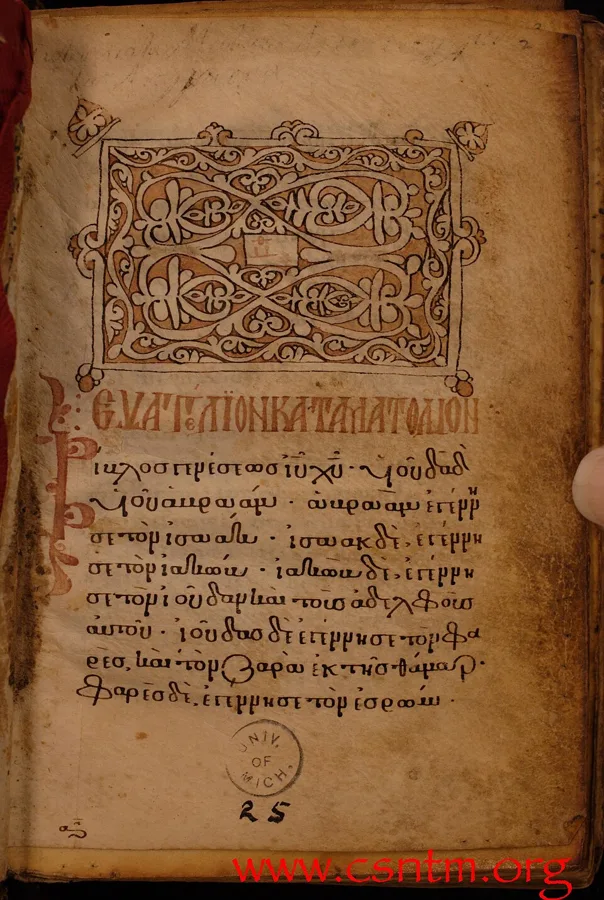 ΕΥΑΓΓΕΛΙΟΝ ΚΑΤΑ ΜΑΤΘΑΙΟΝ
Βίβλος γενέσεως ιῦ χῦ · υἱοῦ δαδ
υἱοῦ ἀβραάμ · ἀβραὰμ ἐγέννη
σε τὸν ἰσαάκ · ἰσαὰκ δὲ, ἐγέννη
σε τὸν ἰακώβ · ἰακὼβ δὲ, ἐγέννη
σε τὸν ἰούδαν καὶ τοὺς ἀδελφοὺς
αὐτοῦ · ἰούδας δὲ ἐγέννησε τὸν φα
ρὲς, καὶ τὸν ζαρὰ ἐκ τῆς θάμαρ ·
φαρὲς δὲ, ἐγέννησε τὸν ἐσρώμ ·
UNIV.
OF
MICH.
25
www.csntm.org